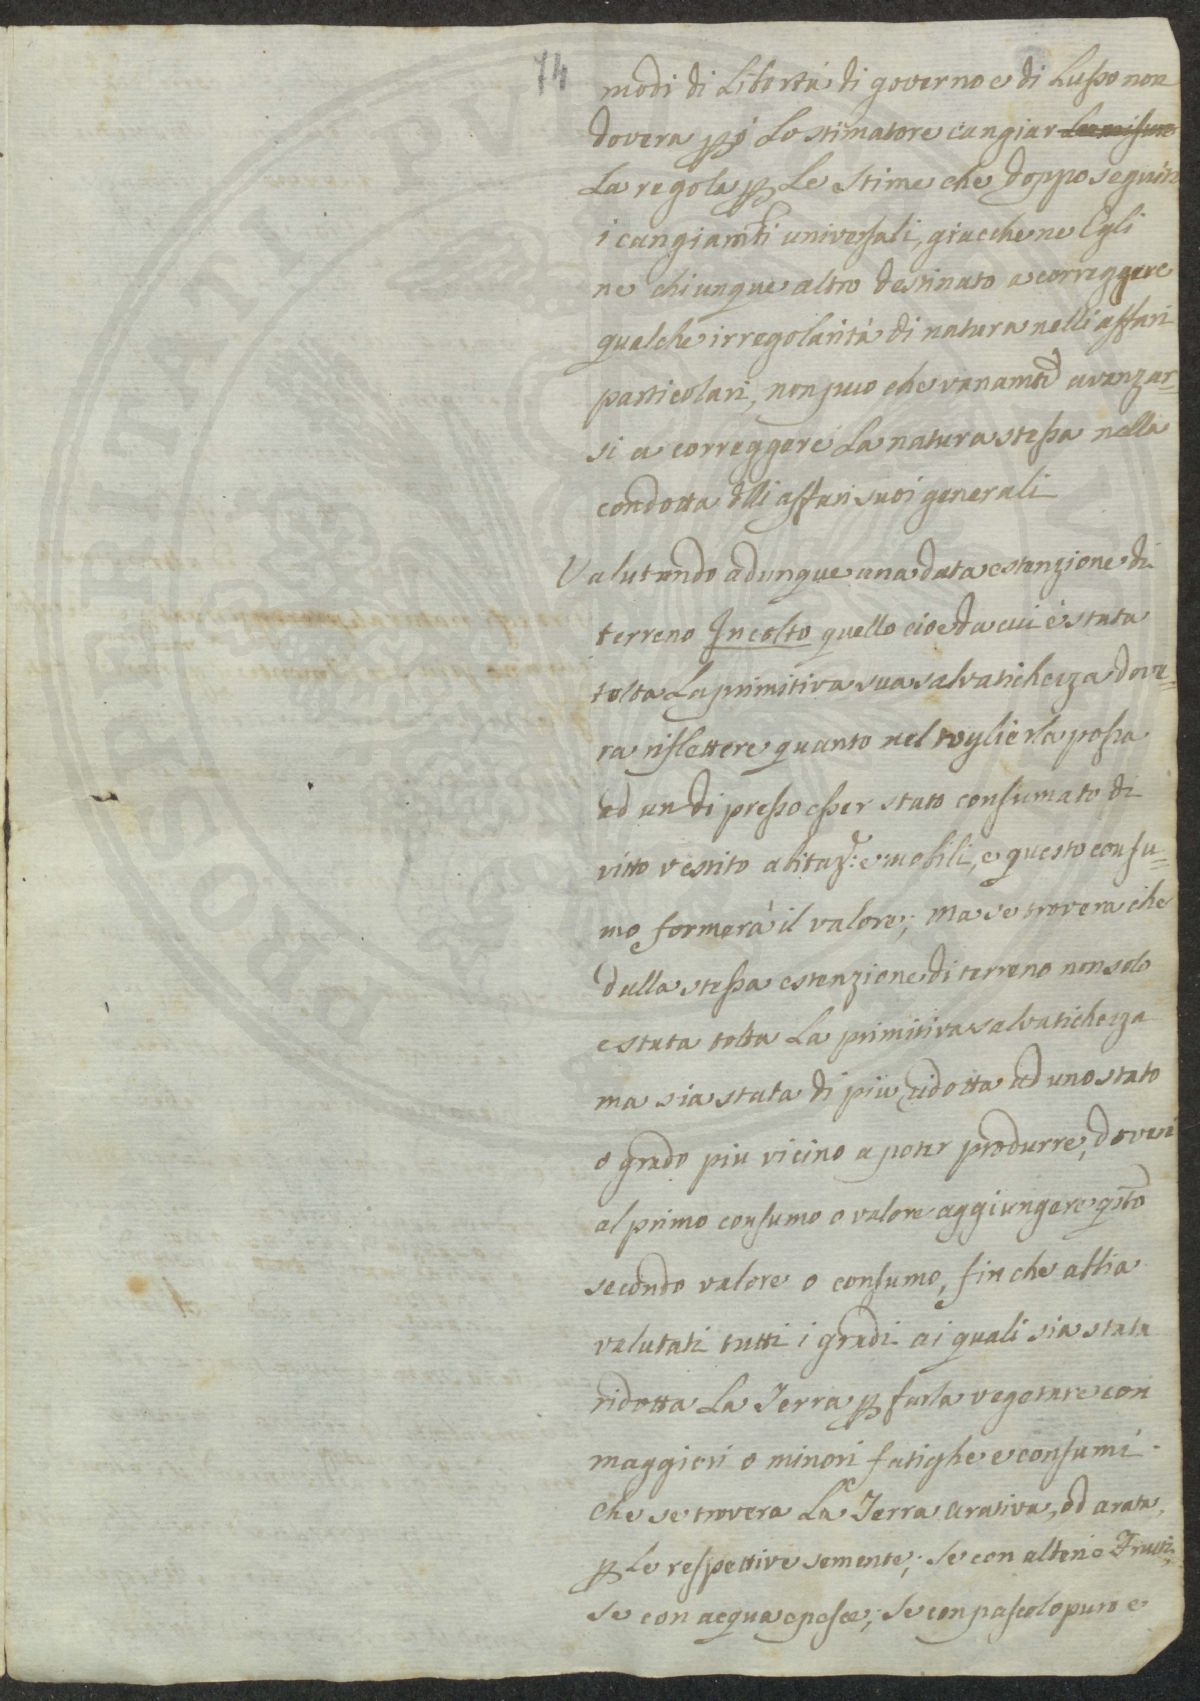 74
modi di Libertà di governo e di Lusso non
dovera pò Lo stimatore cangiar Le misure
La regola p Le stime che doppo seguiti
i cangiamti universali, giacche ne Egli
ne chiunque altro destinato a correggere
qualche irregolarità di natura nelli affari
particolari, non puo che vanamte avanzar-
si a correggere La natura stessa nella
condotta dlli affari suoi generali
Valutando adunque una data estenzione di
terreno Incolto quello cioe da cui è stata
tolta La primitiva sua salvatichezza dove-
ra riflettere quanto nel toglierla possa
ad un di presso esser stato consumato di
vitto vestito abitaz.e e mobili, e questo consu-
mo formerà il valore; Ma se trovera che
dalla stessa estenzione di terreno non solo
e stata tolta La primitiva salvatichezza
ma sia stata di più ridotta ad uno stato
o grado piu vicino a poter produrre, doverà
al primo consumo o valore aggiungere qsto
secondo valore o consumo, fin che abbia
valutati tutti i gradi ai quali sia stata
ridotta La Terra p farla vegetare con
maggiori o minori fatighe e consumi.
Che se trovera La Terra arativa, od arata,
p Le respettive semente; se con alberi e Frutti,
se con acqua e pesce; Se con pascolo puro e